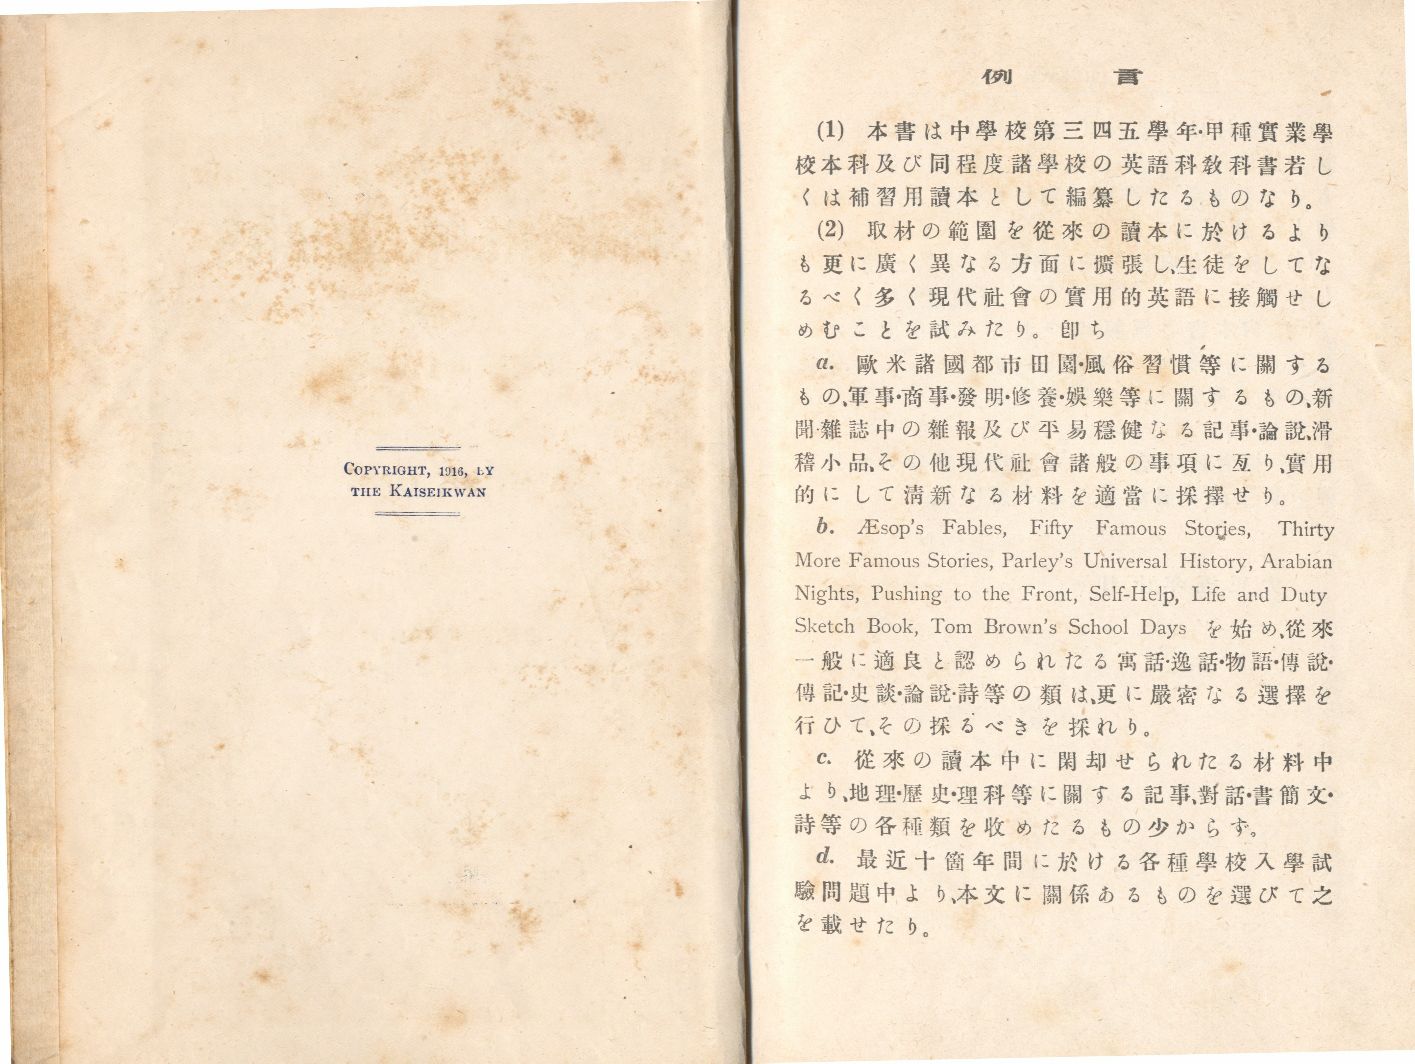 COPYRIGHT, 1916, BY
THE KAISEIKWAN
例言
(1) 本書は中學校第三四五學年·甲種實業學
校本科及び同程度諸學校の英語科教科書若し
くは補習用讀本として編纂したるものなり。
(2) 取材の範圍を從來の讀本に於けるより
も更に廣く異なる方面に擴張し、生徒をしてな
るべく多く現代社會の實用的英語に接觸せし
めむことを試みたり。卽ち
a. 歐米諸國都市田園·風俗習慣等に關する
もの、軍事·商事·發明·修養·娛樂等に關するもの、新
聞·雜誌中の雜報及び平易穩健なる記事·論說、滑
稽小品、その他現代社會諸般の事項に亙り、實用
的にして淸新なる材料を適當に採擇せり。
b. Æsop's Fables, Fifty Famous Stories, Thirty
More Famous Stories, Parley's Universal History, Arabian
Nights, Pushing to the Front, Self-Help, Life and Duty
Sketch Book, Tom Brown's School Days を始め、從來
一般に適良と認められたる寓話·逸話·物語·傳說·
傳記·史談·論說·詩等の類は、更に嚴密なる選擇を
行ひて、その採るべきを採れり。
c. 從來の讀本中に閑却せられたる材料中
より、地理·歷史·理科等に關する記事、對話·書簡文·
詩等の各種類を收めたるもの少からず。
d. 最近十箇年間に於ける各種學校入學試
驗問題中より、本文に關係あるものを選びて之
を載せたり。